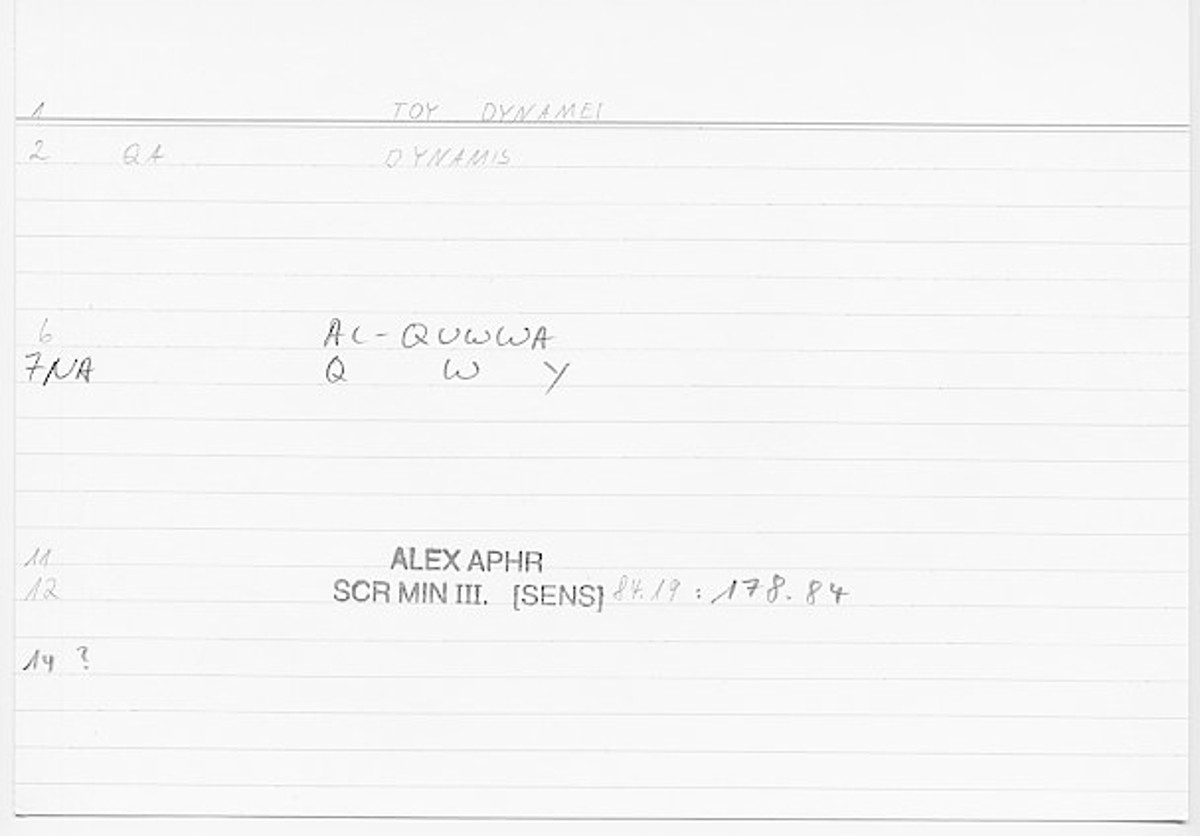 1 TOY DYNAMEI
2 QA DYNAMIS
6 AL-QUWWA
7NA Q W Y
11 ALEX APHR
12 SCR MIN III. [SENS] 84.19 : 178.84
14 ?